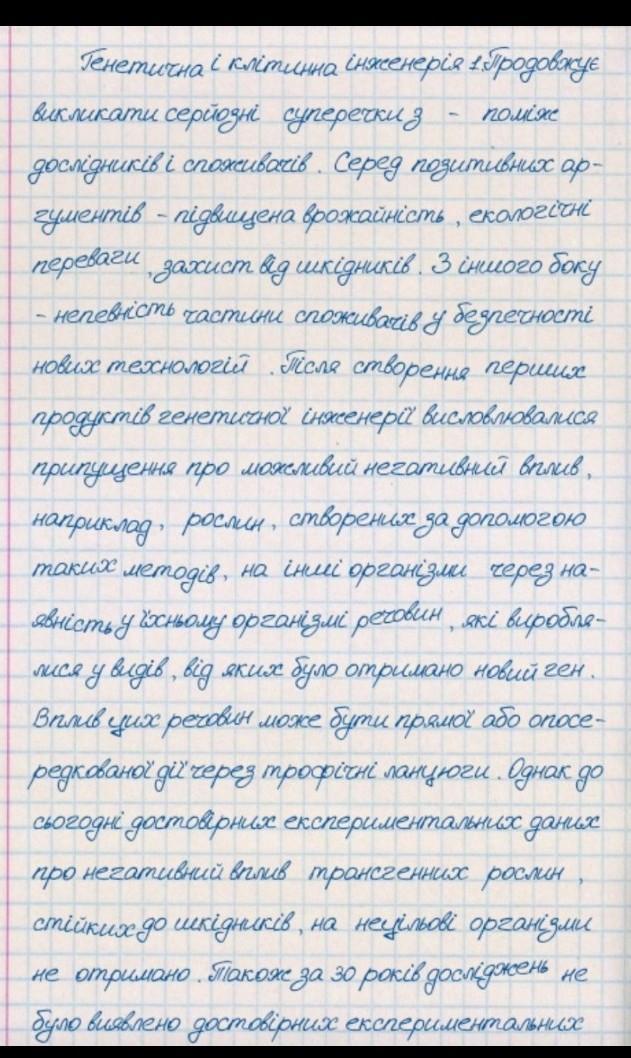 Генетична і клітинна інженерія 1.Продовжує
викликати серйозні суперечки з - поміж
дослідників і споживачів. Серед позитивних ар-
гументів - підвищена врожайність, екологічні
переваги, захист від шкідників. З іншого боку
- непевність частини споживачів у безпечності
нових технологій. Після створення перших
продуктів генетичної інженерії висловлювалися
припущення про можливий негативний вплив,
наприклад, рослин, створених за допомогою
таких методів, на інші організми через на-
явність у їхньому організмі речовин, які виробля-
лися у видів, від яких було отримано новий ген.
Вплив цих речовин може бути прямої або опосе-
редкованої дії через трофічні ланцюги. Однак до
сьогодні достовірних експериментальних даних
про негативний вплив трансгенних рослин,
стійких до шкідників, на нецільові організми
не отримано. Також за 30 років досліджень не
було виявлено достовірних експериментальних